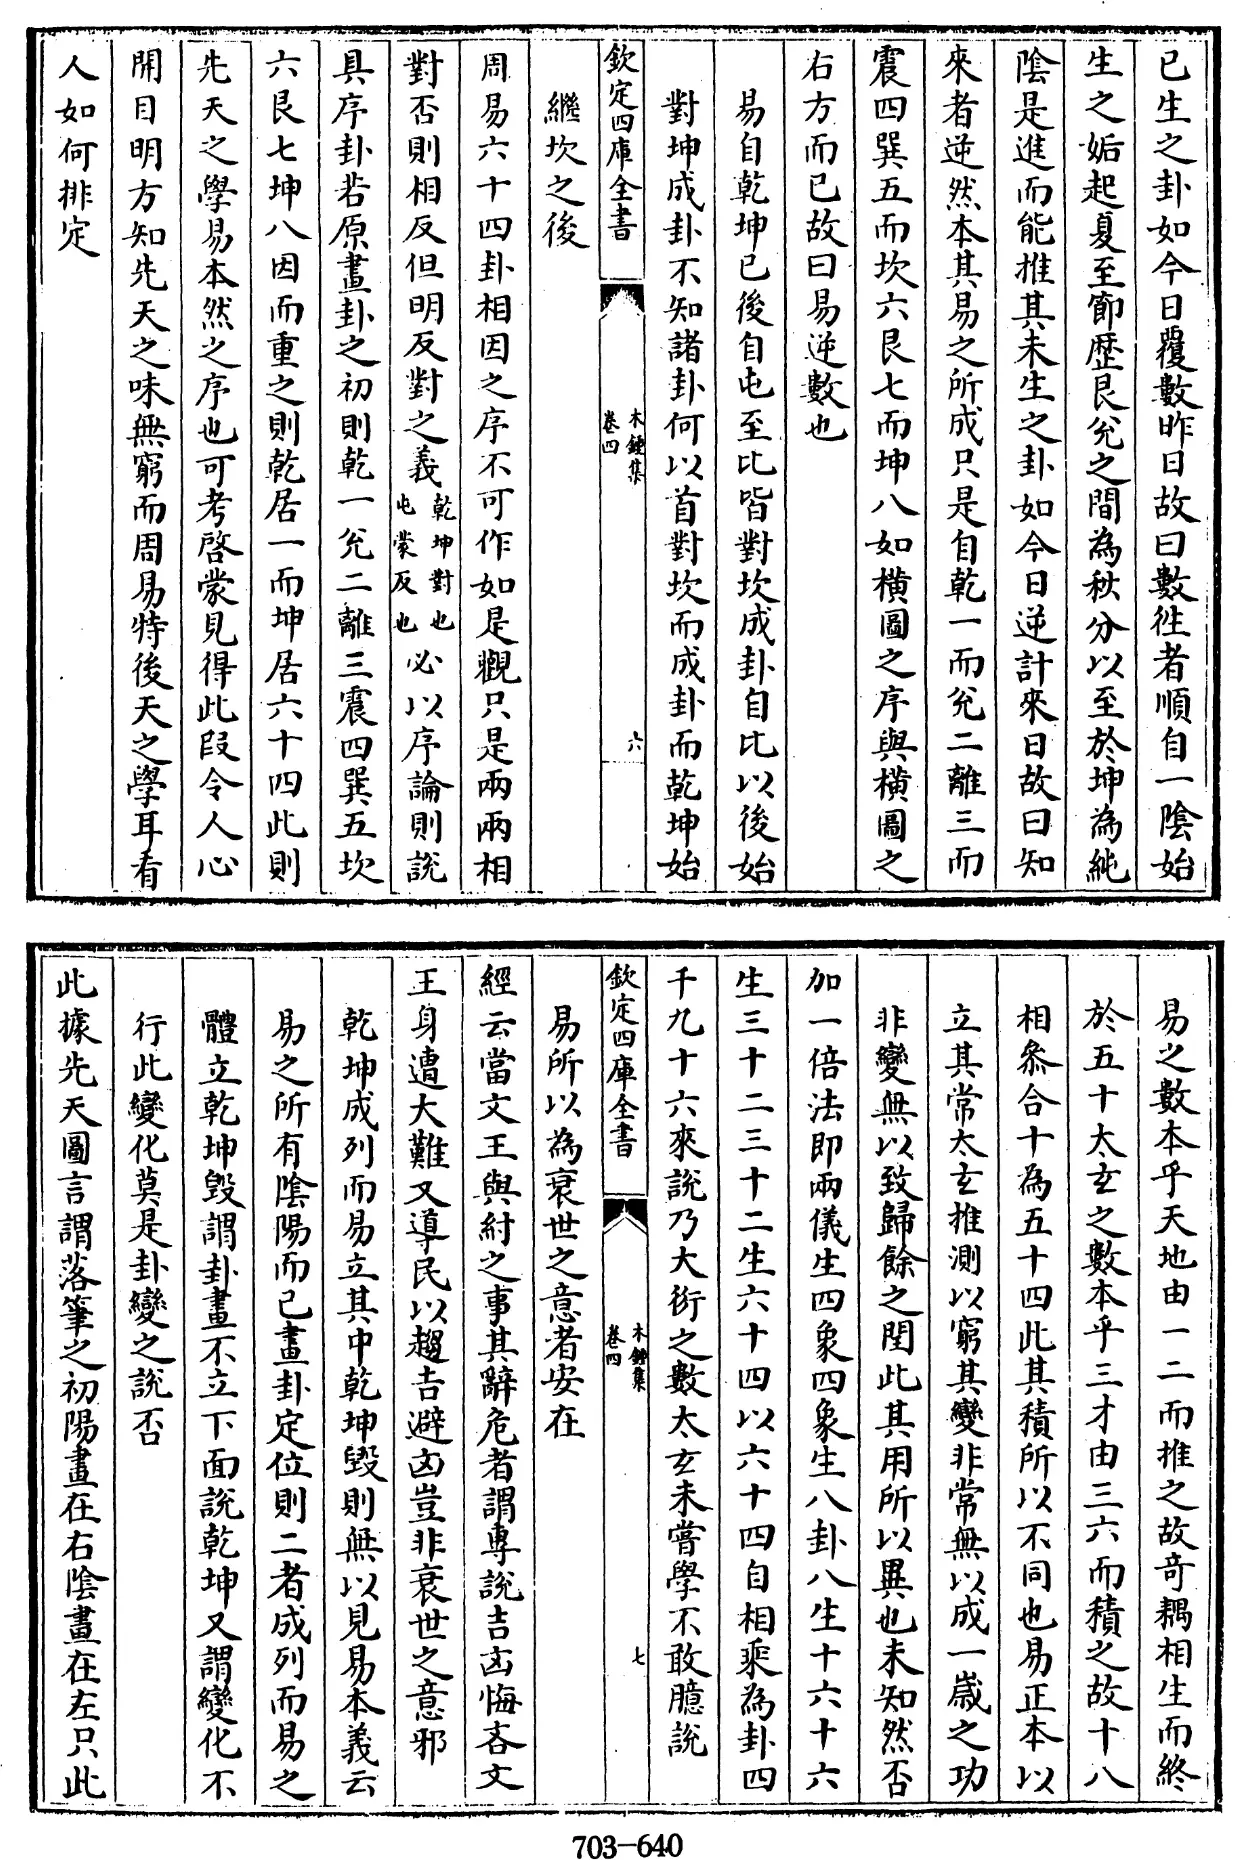 已生之卦如今日覆數昨日故曰數徃者順自一陰始
生之姤起夏至節歷艮兊之間為秋分以至於坤為純
陰是進而能推其未生之卦如今日逆計來日故曰知
來者逆然本其易之所成只是自乾一而兊二離三而
震四巽五而坎六艮七而坤八如橫圖之序與橫圖之
右方而已故曰易逆數也
易自乾坤已後自屯至比皆對坎成卦自比以後始
對坤成卦不知諸卦何以首對坎而成卦而乾坤始
欽定四庫全書
木鍾集
卷四
六
繼坎之後
周易六十四卦相因之序不可作如是觀只是兩兩相
對否則相反但明反對之義乾坤對也屯蒙反也必以序論則說
具序卦若原畫卦之初則乾一兊二離三震四巽五坎
六艮七坤八因而重之則乾居一而坤居六十四此則
先天之學易本然之序也可考啓蒙見得此段令人心
開目明方知先天之味無窮而周易特後天之學耳看
人如何排定
易之數本乎天地由一二而推之故奇耦相生而終
於五十太玄之數本乎三才由三六而積之故十八
相叅合十為五十四此其積所以不同也易正本以
立其常太玄推測以窮其變非常無以成一歲之功
非變無以致歸餘之閏此其用所以異也未知然否
加一倍法即兩儀生四象四象生八卦八生十六十六
生三十二三十二生六十四以六十四自相乘為卦四
千九十六來說乃大衍之數太玄未嘗學不敢臆說
欽定四庫全書
木鍾集
卷四
七
易所以為衰世之意者安在
經云當文王與紂之事其辭危者謂專說吉凶悔吝文
王身遭大難又導民以趨吉避凶豈非衰世之意邪
乾坤成列而易立其中乾坤毀則無以見易本義云
易之所有陰陽而已畫卦定位則二者成列而易之
體立乾坤毀謂卦畫不立下面說乾坤又謂變化不
行此變化莫是卦變之說否
此據先天圖言謂落筆之初陽畫在右陰畫在左只此
703-640